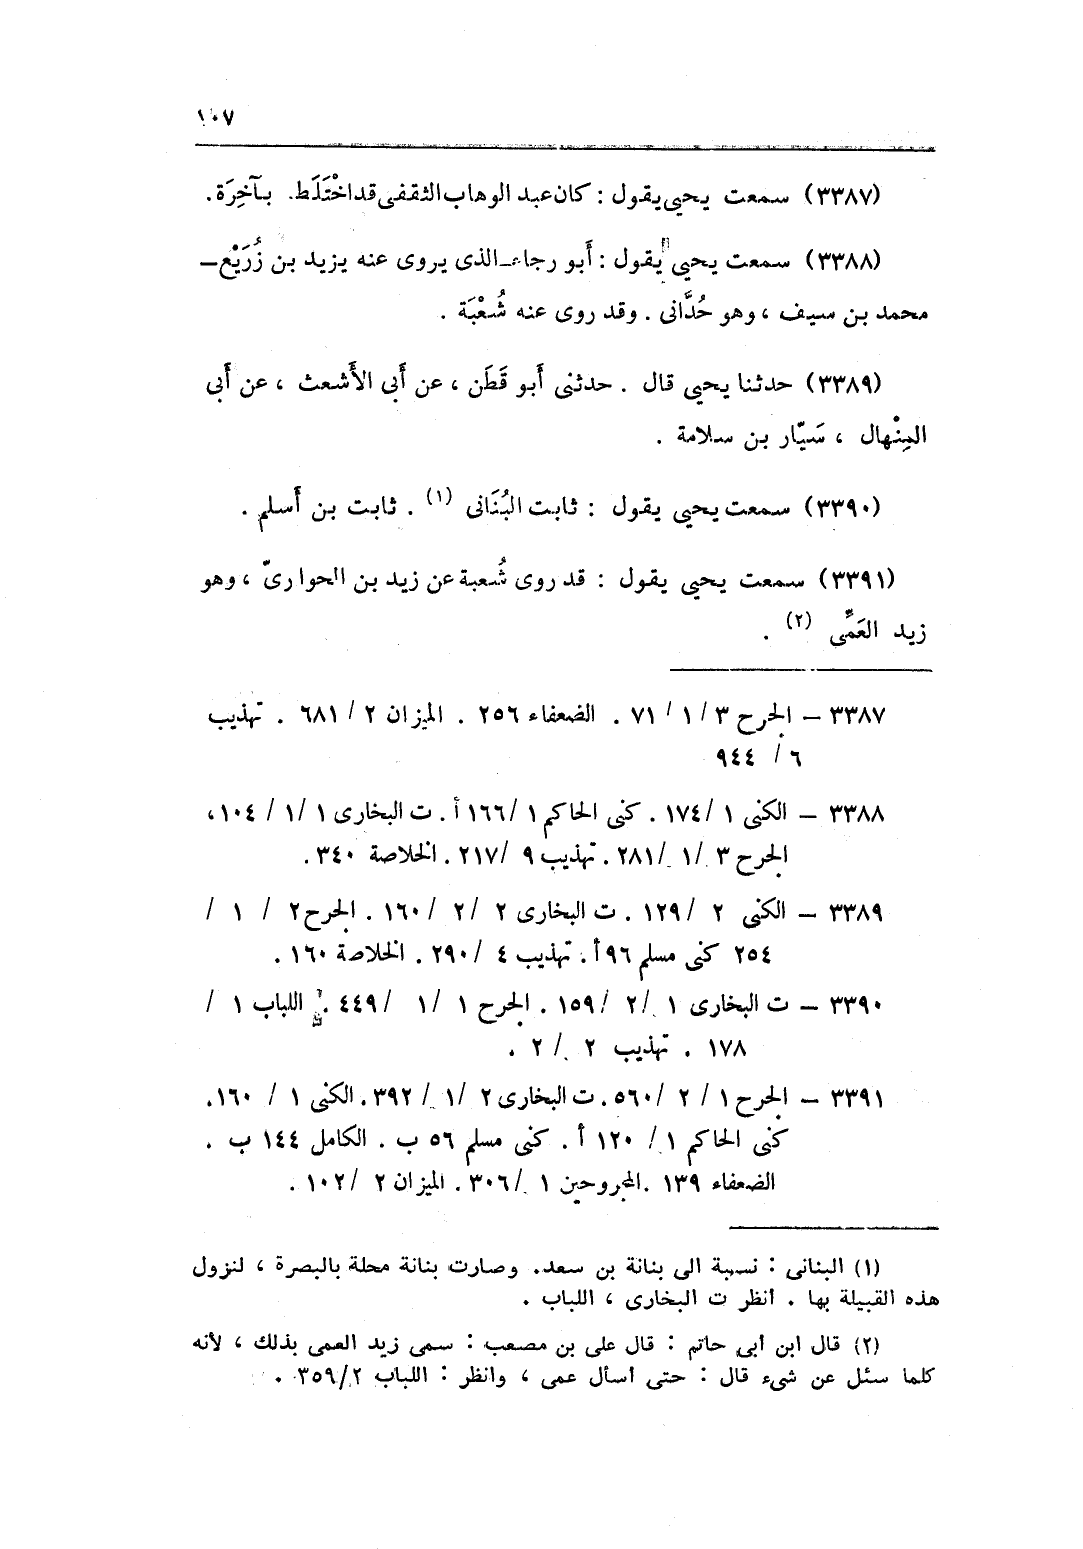 ١٠٧
(٣٣٨٧) سمعت يحيى يقول : كان عبد الوهاب الثقفى قد اخْتَلَط. بـآخِرَة.
(٣٣٨٨) سمعت يحيى يقول : أَبو رجاء ــ الذى يروى عنه يزيد بن زُرَيْع ــ
محمد بن سيف ، وهو حُدَّانى . وقد روى عنه شُعْبَة .
(٣٣٨٩) حدثنا يحيى قال . حدثنى أَبو قَطَن ، عن أَبى الأَشعث ، عن أَبى
المِنْهال ، سَيّار بن سلامة .
(٣٣٩٠) سمعت يحيى يقول : ثابت البُنَانى (١) . ثابت بن أَسلم .
(٣٣٩١) سمعت يحيى يقول : قد روى شُعبة عن زيد بن الحوارىّ ، وهو
زيد العَمِّى (٢) .
٣٣٨٧ – الجرح ٣ / ١ / ٧١ . الضعفاء ٢٥٦ . الميزان ٢ / ٦٨١ . تهذيب
٦ / ٩٤٤
٣٣٨٨ – الكنى ١ / ١٧٤ . كنى الحاكم ١ / ١٦٦ أ . ت البخارى ١ / ١ / ١٠٤ ،
الجرح ٣ / ١ / ٢٨١ . تهذيب ٩ / ٢١٧ . الخلاصة ٣٤٠ .
٣٣٨٩ – الكنى ٢ / ١٢٩ . ت البخارى ٢ / ٢ / ١٦٠ . الجرح ٢ / ١ /
٢٥٤ كنى مسلم ٩٦ أ . تهذيب ٤ / ٢٩٠ . الخلاصة ١٦٠ .
٣٣٩٠ – ت البخارى ١ / ٢ / ١٥٩ . الجرح ١ / ١ / ٤٤٩ . اللباب ١ /
١٧٨ . تهذيب ٢ / ٢ .
٣٣٩١ – الجرح ١ / ٢ / ٥٦٠ . ت البخارى ٢ / ١ / ٣٩٢ . الكنى ١ / ١٦٠ .
كنى الحاكم ١ / ١٢٠ أ . كنى مسلم ٥٦ ب . الكامل ١٤٤ ب .
الضعفاء ١٣٩ . المجروحين ١ / ٣٠٦ . الميزان ٢ / ١٠٢ .
(١) البنانى : نسبة الى بنانة بن سعد. وصارت بنانة محلة بالبصرة ، لنزول
هذه القبيلة بها . انظر ت البخارى ، اللباب .
(٢) قال ابن أبى حاتم : قال على بن مصعب : سمى زيد العمى بذلك ، لأنه
كلما سئل عن شىء قال : حتى اسأل عمى ، وانظر : اللباب ٣٥٩/٢ .